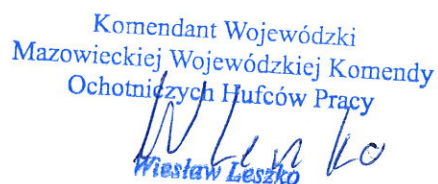 Komendant Wojewódzki
Mazowieckiej Wojewódzkiej Komendy
Ochotniczych Hufców Pracy
W Leszko
Wiesław Leszko